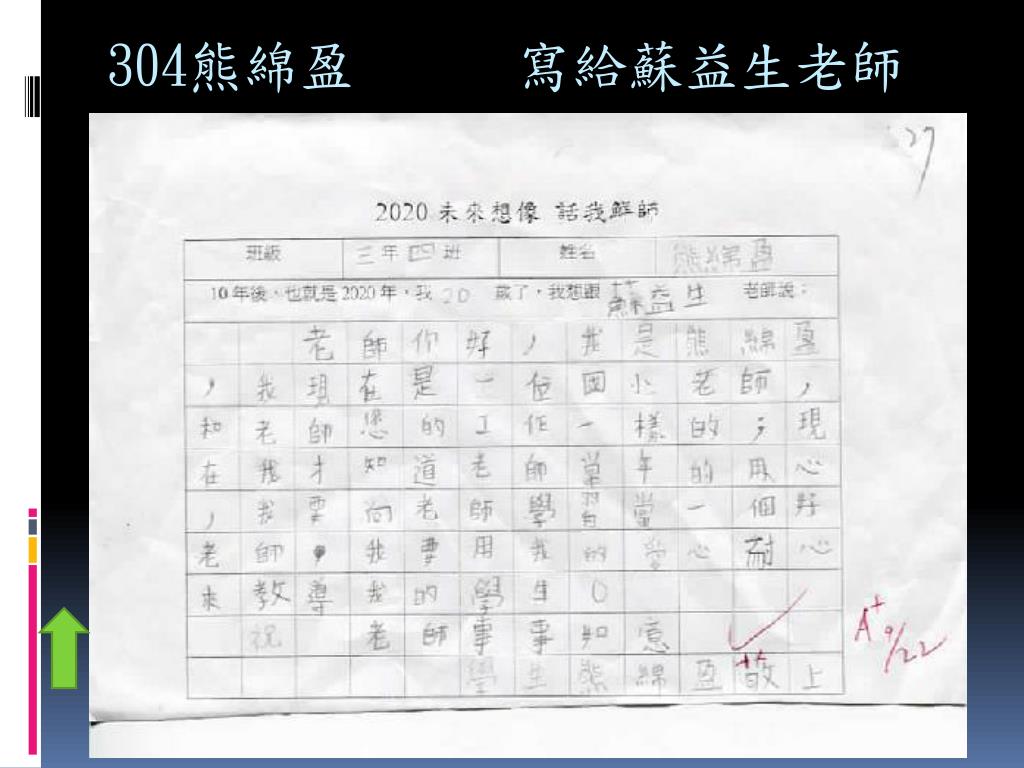 304熊綿盈 寫給蘇益生老師
27
2020 未來想像 話我鮮師
班級 三年四班 姓名 熊綿盈
10年後，也就是2020年，我20歲了，我想跟蘇益生老師說：
老師你好，我是熊綿盈
，我現在是一位國小老師，
和老師您的工作一樣的；現
在我才知道老師當年的用心
，我要向老師學習當一個好
老師，我要用我的愛心耐心
來教導我的學生。
祝 老師事事知意
學生熊綿盈敬上
A+ 9/22